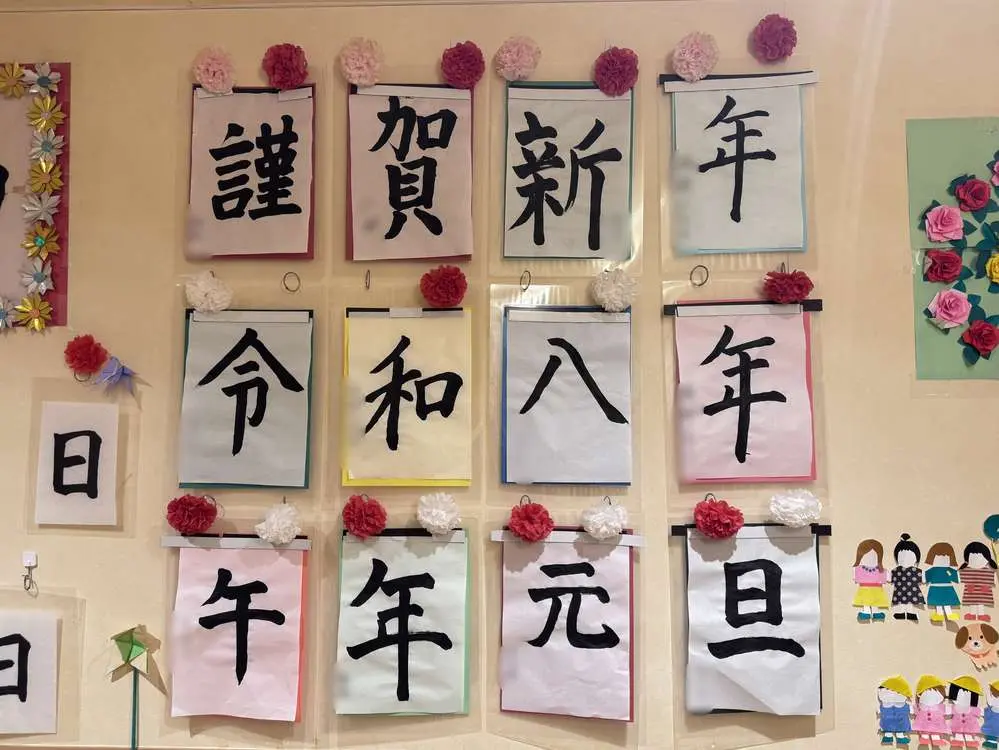 謹賀新年
令和八年
午年元旦
日
日